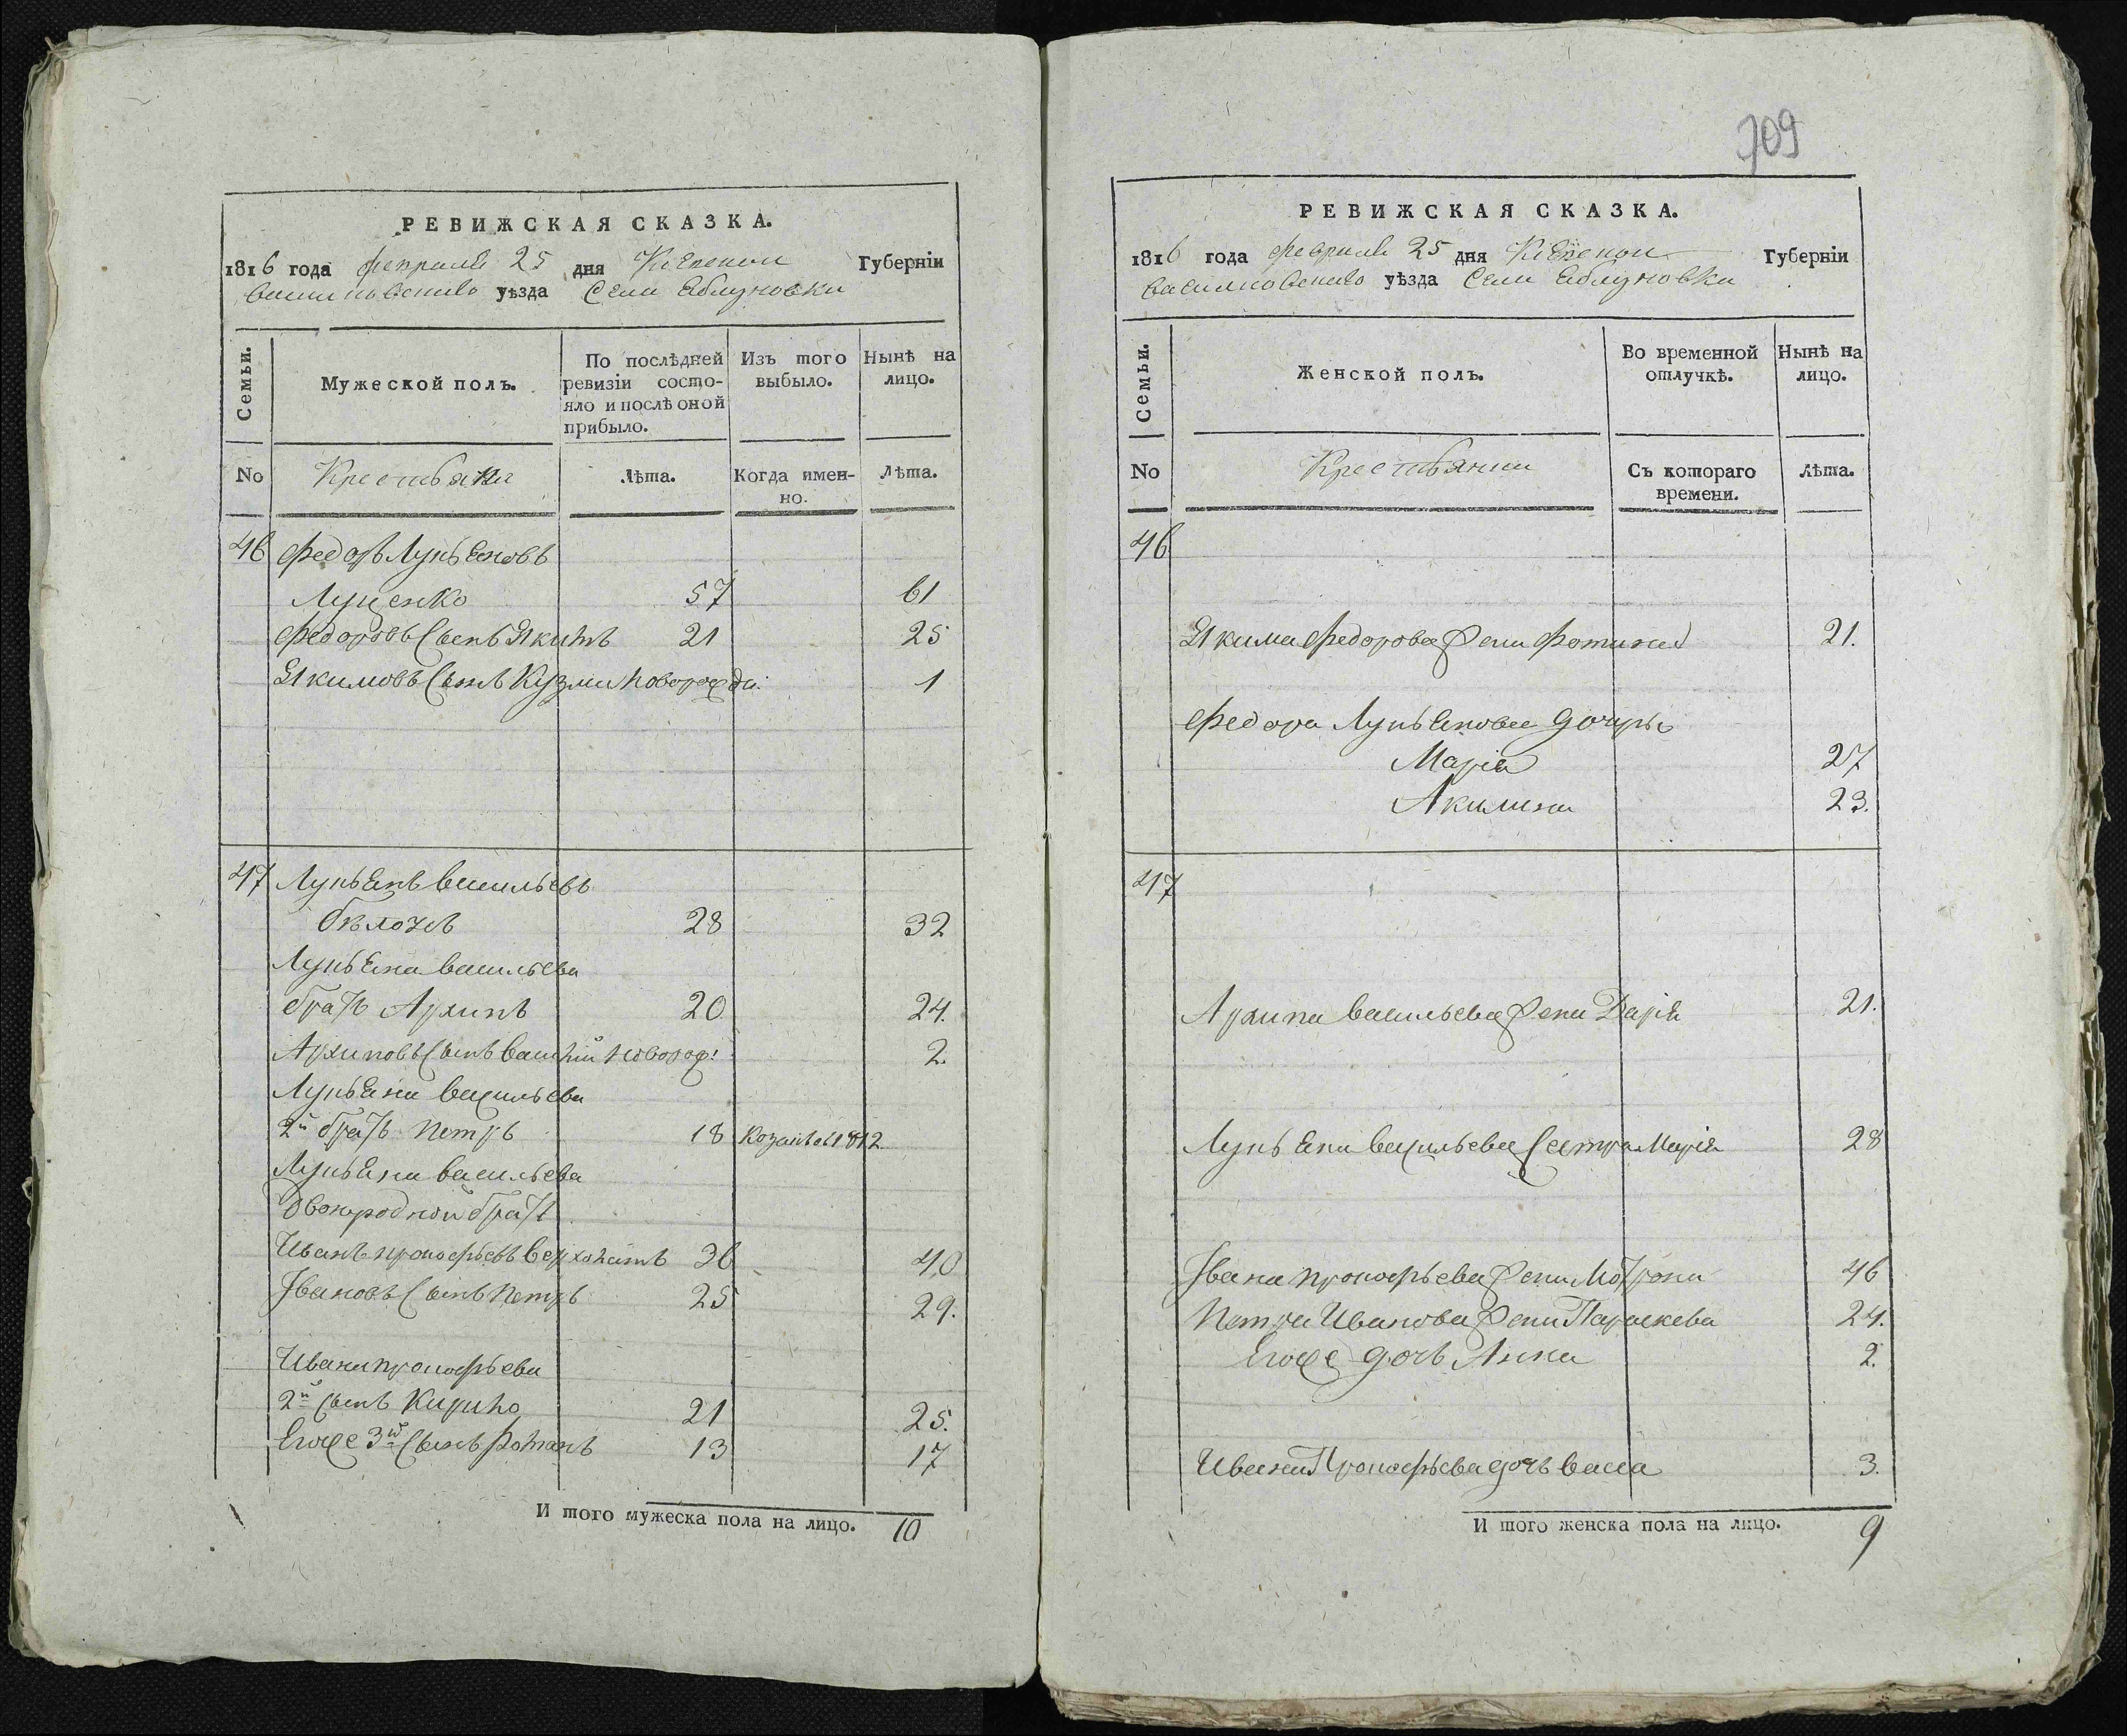 РЕВИЖСКАЯ СКАЗКА.
1816 года февраля 25 дня Кіевской Губерніи
васильковскаго уѣзда Села Яблуновки
Семьи.
Мужеской полъ.
По послѣдней ревизіи состояло и послѣ оной прибыло.
Изъ того выбыло.
Нынѣ на лицо.
No
Крестьяни
Лѣта.
Когда именно.
Лѣта.
46 Федоръ Лукьеновъ
Луценко 57 61
Федоровъ Сынъ Якимъ 21 25
Якимовъ Сынъ Кузма новорожде: 1
47 Лукьенъ васильевъ
28 32
Лукьена васильева
братъ Архипъ 20 24.
Архиповъ Сынъ василій новорож: 2.
Лукьена васильева
2й братъ Петръ 18 1812
Лукьена васильева
двоюродной братъ
Иванъ прокофьевъ 36 40
Ивановъ Сынъ Петръ 25 29.
Ивана прокофьева
2й Сынъ Кирило 21 25.
Егоже 3й Сынъ Романъ 13 17
И того мужеска пола на лицо. 10
709
РЕВИЖСКАЯ СКАЗКА.
1816 года февраля 25 дня Кіевской Губерніи
васильковскаго уѣзда Села Яблуновки
Семьи.
Женской полъ.
Во временной отлучкѣ.
Нынѣ на лицо.
No
Крестьянки
Съ котораго времени.
Лѣта.
46
Якима Федорова жена Фотинія 21.
Федора Лукьенова дочери
Марія 27
Акилина 23.
47
Архипа васильева жена Дарія 21.
Лукьена васильева Сестра Марія 28
Ивана прокофьева жена Мотрона 46
Петра Иванова жена Параскева 24.
Егоже дочь Анна 2.
Ивана Прокофьева дочь васса 3.
И того женска пола на лицо. 9